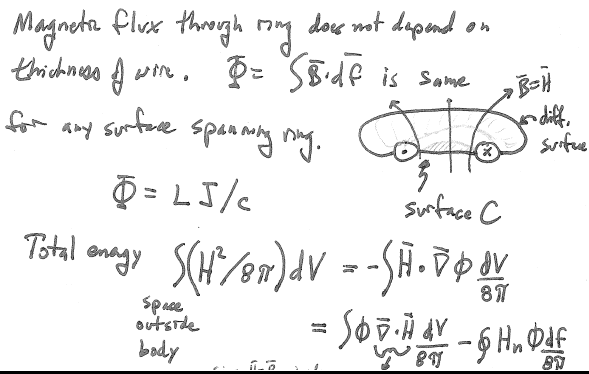 Magnetic flux through ring does not depend on
thickness of wire. Φ = ∫B̄·df̄ is same
for any surface spanning ring.
B̄=H̄
diff.
surface
Φ = LJ/c
surface C
Total energy ∫(H²/8π)dV = -∫H̄·∇̄φ dV/8π
space
outside
body
= ∫φ∇̄·H̄ dV/8π - ∮Hₙφ df/8π